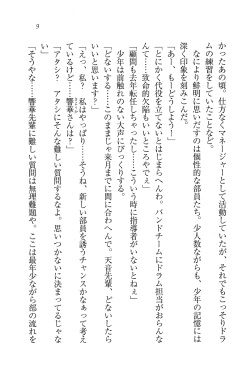 9
かったあの頃、仕方なくマネージャーとして活動していたが、それでもこっそりドラ
ムの練習をしていたことなど。
なにより鮮明に思い出すのは個性的な部員たち。少人数ながらも、少年の記憶には
深く印象を刻みこんだ。
「あー、もうどうしよう！」
「とにかく代役を立てないとはじまらへんわ。バンドチームにドラム担当がおらんな
んて……致命的欠陥もいいところやで」
「顧問も去年転任しちゃったし……こういう時に指導者がいないとねぇ」
少年は前触れのない大声にびっくりする。
「どないする……このままじゃ来月までに間に合わへんで。天音先輩、どないしたら
いいと思います？」
「えっ、私？　私はやっぱり……新しい部員を誘うチャンスかなぁって考え
てるけど……響華さんは？」
「アタシ！　アタシにそんな難しい質問するなよ。思いつかないに決まってるじゃな
い」
「そうやな……響華先輩に難しい質問は無理難題や。ここは最年少ながら部の流れを